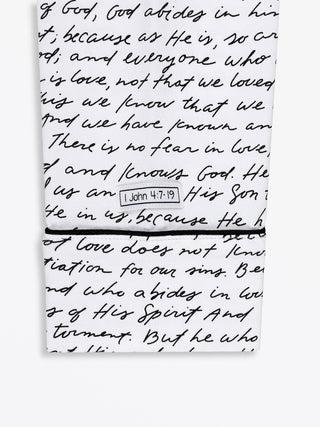 of God, God abides in him
t; because as He is, so ar
d; and everyone who
is love, not that we loved
his we know that we
And we have known an
There is no fear in love,
d and knows God. He
l us an 1 John 4:7-19 His Son
He in us, because He h
ot love does not kno
tiation for our sins. Be
nd who abides in lov
s of His Spirit And
torment. But he who